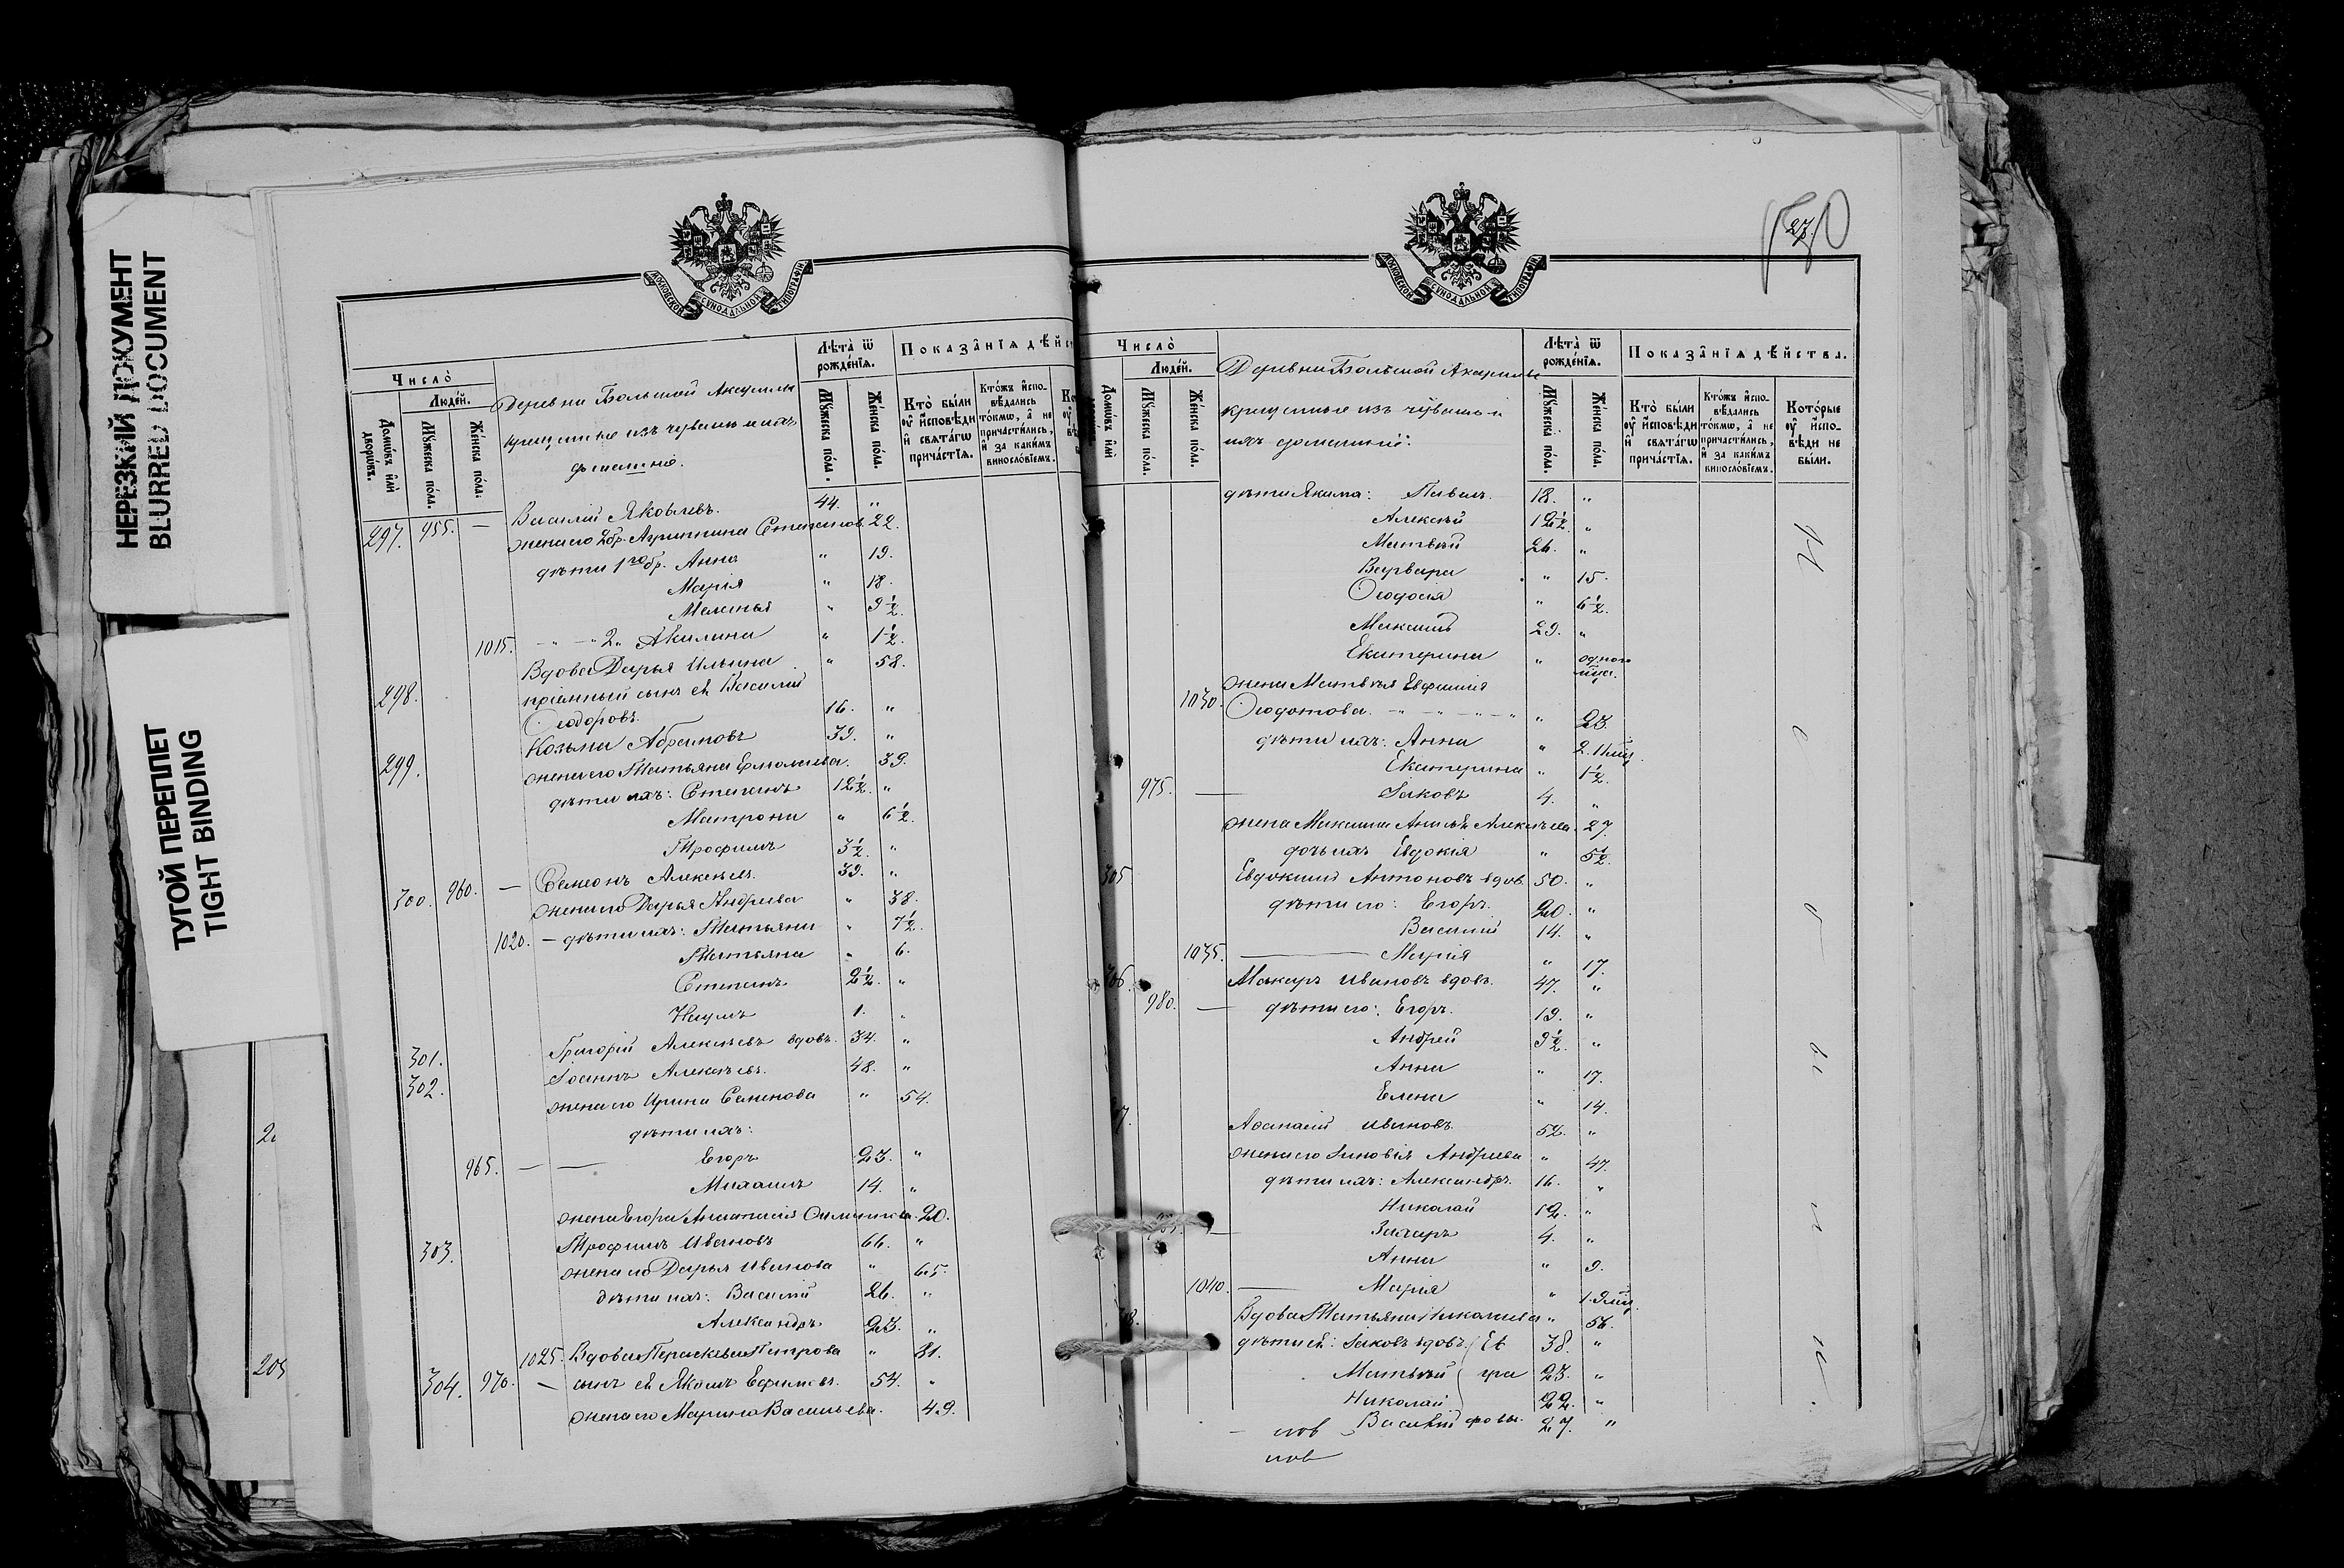 НЕРЕЗКИЙ ДОКУМЕНТ
BLURRED DOCUMENT
ТУГОЙ ПЕРЕПЛЕТ
TIGHT BINDING
205
МОСКОВСКОЙ СѴНОДАЛЬНОЙ ТИПОГРАФІИ
Число̀
Люде́й.
Домѡ́въ и҆лѝ дворѡ́въ.
Мꙋ́жеска по́ла.
Же́нска по́ла.
Деревни Большой Аксулы
крещеные изъ чувашъ и ихъ
домашніе.
Лѣта̀ ѿ рожде́нїѧ.
Мꙋ́жеска по́ла.
Же́нска по́ла.
Показа̑нїѧ дѣ́йс
Кто̀ бы́ли оу҆ и҆спове́ди и҆ свѧта́гѡ прича́стїѧ.
Кто́жъ и҆спо-вѣ́дались то́кмѡ, а҆ не причасти́лись, и҆ за каки́мъ винословїемъ.
297. 955. — Василій Яковлевъ. 44. "
жена его 2 бр. Агрипина Степанов. 22.
дѣти 1го бр. Анна " 19.
Марія " 18.
Меланья " 9½.
1015. — " — " 2. Акилина " 1½.
298. Вдова Дарья Ильина " 58.
пріемный сынъ ея Василій
Ѳеодоровъ. 16. "
299. Козьма Абрамовъ 39. "
жена его Татьяна Ермолаева. 39.
дѣти ихъ: Степанъ 12½. "
Матрона " 6½.
Трофимъ 3½. "
300. 960. — Семеонъ Алексѣев. 39. "
жена его Дарья Андреева " 38.
1020. — дѣти ихъ: Татьяна " 7½.
Татьяна " 6.
Степанъ 2½. "
Наумъ 1. "
301. Григорій Алексѣевъ вдовъ. 34. "
302. Іоаннъ Алексѣевъ. 48. "
жена его Ирина Семенова " 54.
дѣти ихъ:
965. — — Егоръ 23. "
Михаилъ 14. "
жена Егора Анастасія 20.
303. Трофимъ Ивановъ 66. "
жена его Дарья Иванова " 65.
дѣти ихъ: Василій 26. "
Александръ 23. "
1025. Вдова Параскева Петрова " 81.
304. 970. — сынъ ея Якимъ Ефимовъ. 54. "
жена его Марина Васильева. 49.
27.
МОСКОВСКОЙ СѴНОДАЛЬНОЙ ТИПОГРАФІИ
Число̀
Люде́й.
Домѡ́въ и҆лѝ
Мꙋ́жеска по́ла.
Же́нска по́ла.
Деревни Большой Акsулы
крещеные изъ чувашъ и
ихъ домашніи:
Лѣта̀ ѿ рожде́нїѧ.
Мꙋ́жеска по́ла.
Же́нска по́ла.
Показа̑нїѧ дѣ́йства.
Кто̀ бы́ли оу҆ и҆спове́ди и҆ свѧта́гѡ прича́стїѧ.
Кто́жъ и҆спо-вѣ́дались то́кмѡ, а҆ не причасти́лись, и҆ за каки́мъ винословїемъ.
Кото́рые оу҆ и҆спо-вѣ́ди не бы́ли.
дѣти Якима: Павелъ. 18. "
Алексѣй 12½. "
Матвѣй 26. "
Варвара " 15.
Ѳеодосія " 6½.
Максимъ 29. "
Екатерина " одного мѣс.
жена Матвѣя Евфимія
1030. Ѳедотова. — " — " — " — " " 23.
дѣти ихъ: Анна " 2. 11 мѣц.
Екатерина " 1½.
975. — Іаковъ 4. "
жена Максима Анисья Алексѣева. 27.
дочь ихъ Евдокія " 5½.
305 Евдокимъ Антоновъ вдов. 50. "
дѣти его: Егоръ. 20. "
Василій 14. "
1035. — Марія " 17.
306. Макаръ Ивановъ вдовъ. 47. "
980. — дѣти его: Егоръ. 19. "
Андрей 9½. "
Анна " 17.
Елена " 14.
7. Аѳанасій Ивановъ. 52. "
жена его Зиновія Андреева " 47.
дѣти ихъ: Александръ. 16. "
Николай 12. "
Захаръ 4. "
Анна " 9.
1040. — Марія " 1. 9 мѣц.
8. Вдова Татьяна Николаева " 56.
дѣти ея: Іаковъ вдовъ. 38. "
Матвѣй 23. "
Николай 22. "
Василій 27. "